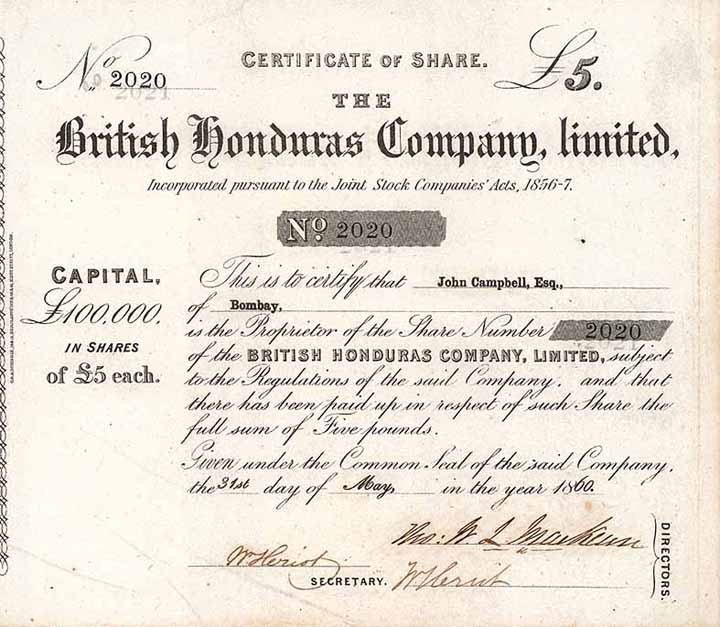 No 2020
CERTIFICATE OF SHARE.
£5.
THE
British Honduras Company, limited,
Incorporated pursuant to the Joint Stock Companies' Acts, 1856-7.
No 2020
CAPITAL,
£100,000,
IN SHARES
OF £5 each.
This is to certify that John Campbell, Esq.,
of Bombay,
is the Proprietor of the Share Number 2020
of the BRITISH HONDURAS COMPANY, LIMITED, subject
to the Regulations of the said Company, and that
there has been paid up in respect of such Share the
full sum of Five pounds.
Given under the Common Seal of the said Company,
the 31st day of May, in the year 1860.
W Heriot
SECRETARY.
W Heriot
DIRECTORS.